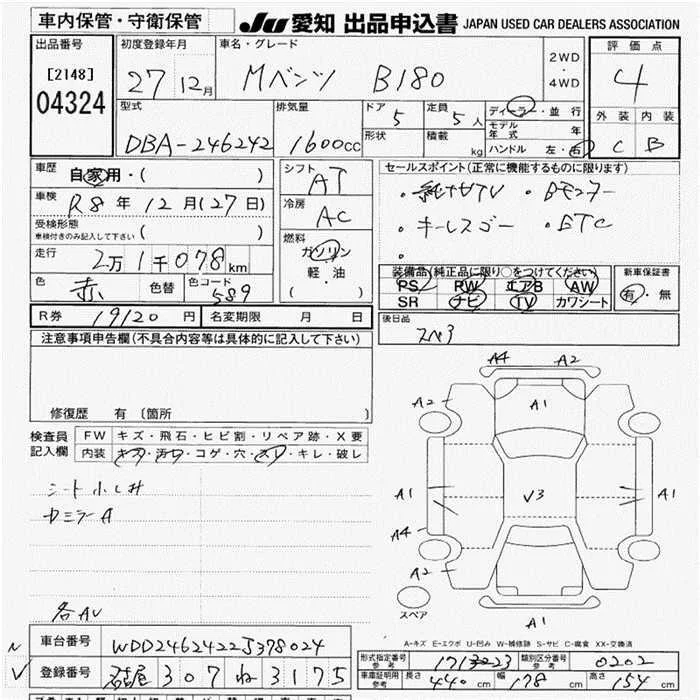 車内保管・守衛保管
JU 愛知 出品申込書 JAPAN USED CAR DEALERS ASSOCIATION
出品番号
[2148]
04324
初度登録年月
27 12月
車名・グレード
Mベンツ B180
2WD
・
4WD
評価点
4
外装 内装
C B
型式
DBA-246242
排気量
1600cc
ドア
5
定員
5人
形状
積載
kg
ディーラー・並行
モデル年式 年
ハンドル 左・右
車歴
自家用・( )
車検
R8年12月(27日)
受検形態
車検付きのみ記入して下さい ( )
走行
2万1千078km
色
赤
色替
色コード
589
シフト
AT
冷房
AC
燃料
ガソリン
軽・油
( )
セールスポイント(正常に機能するものに限ります)
・純ナビTV ・Bモニター
・キーレスゴー ・ETC
・
装備品(純正品に限り○をつけてください)
PS PW エアB AW
SR ナビ TV カワシート
新車保証書
有・無
R券 19120円
名変期限 月 日
後日品
スペ3
注意事項申告欄(不具合内容等は具体的に記入して下さい)
修復歴 有 〔箇所 〕
検査員
記入欄
FW キズ・飛石・ヒビ割・リペア跡・X要
内装 キズ・汚れ・コゲ・穴・スレ・キレ・破レ
シート小シミ
各AU
A4 A2
A2 A1
A1 V3 A1
A4
A2
A1
スペア
A-キズ E-エクボ U-凹み W-補修跡 S-サビ C-腐食 XX-交換済
車台番号 WDD2462422J378024
登録番号 名古屋 307 ね 3175
形式指定番号
参考
類別区分番号
参考
0202
車庫証明用
参考
長さ 440cm 幅 178cm 高さ 154cm